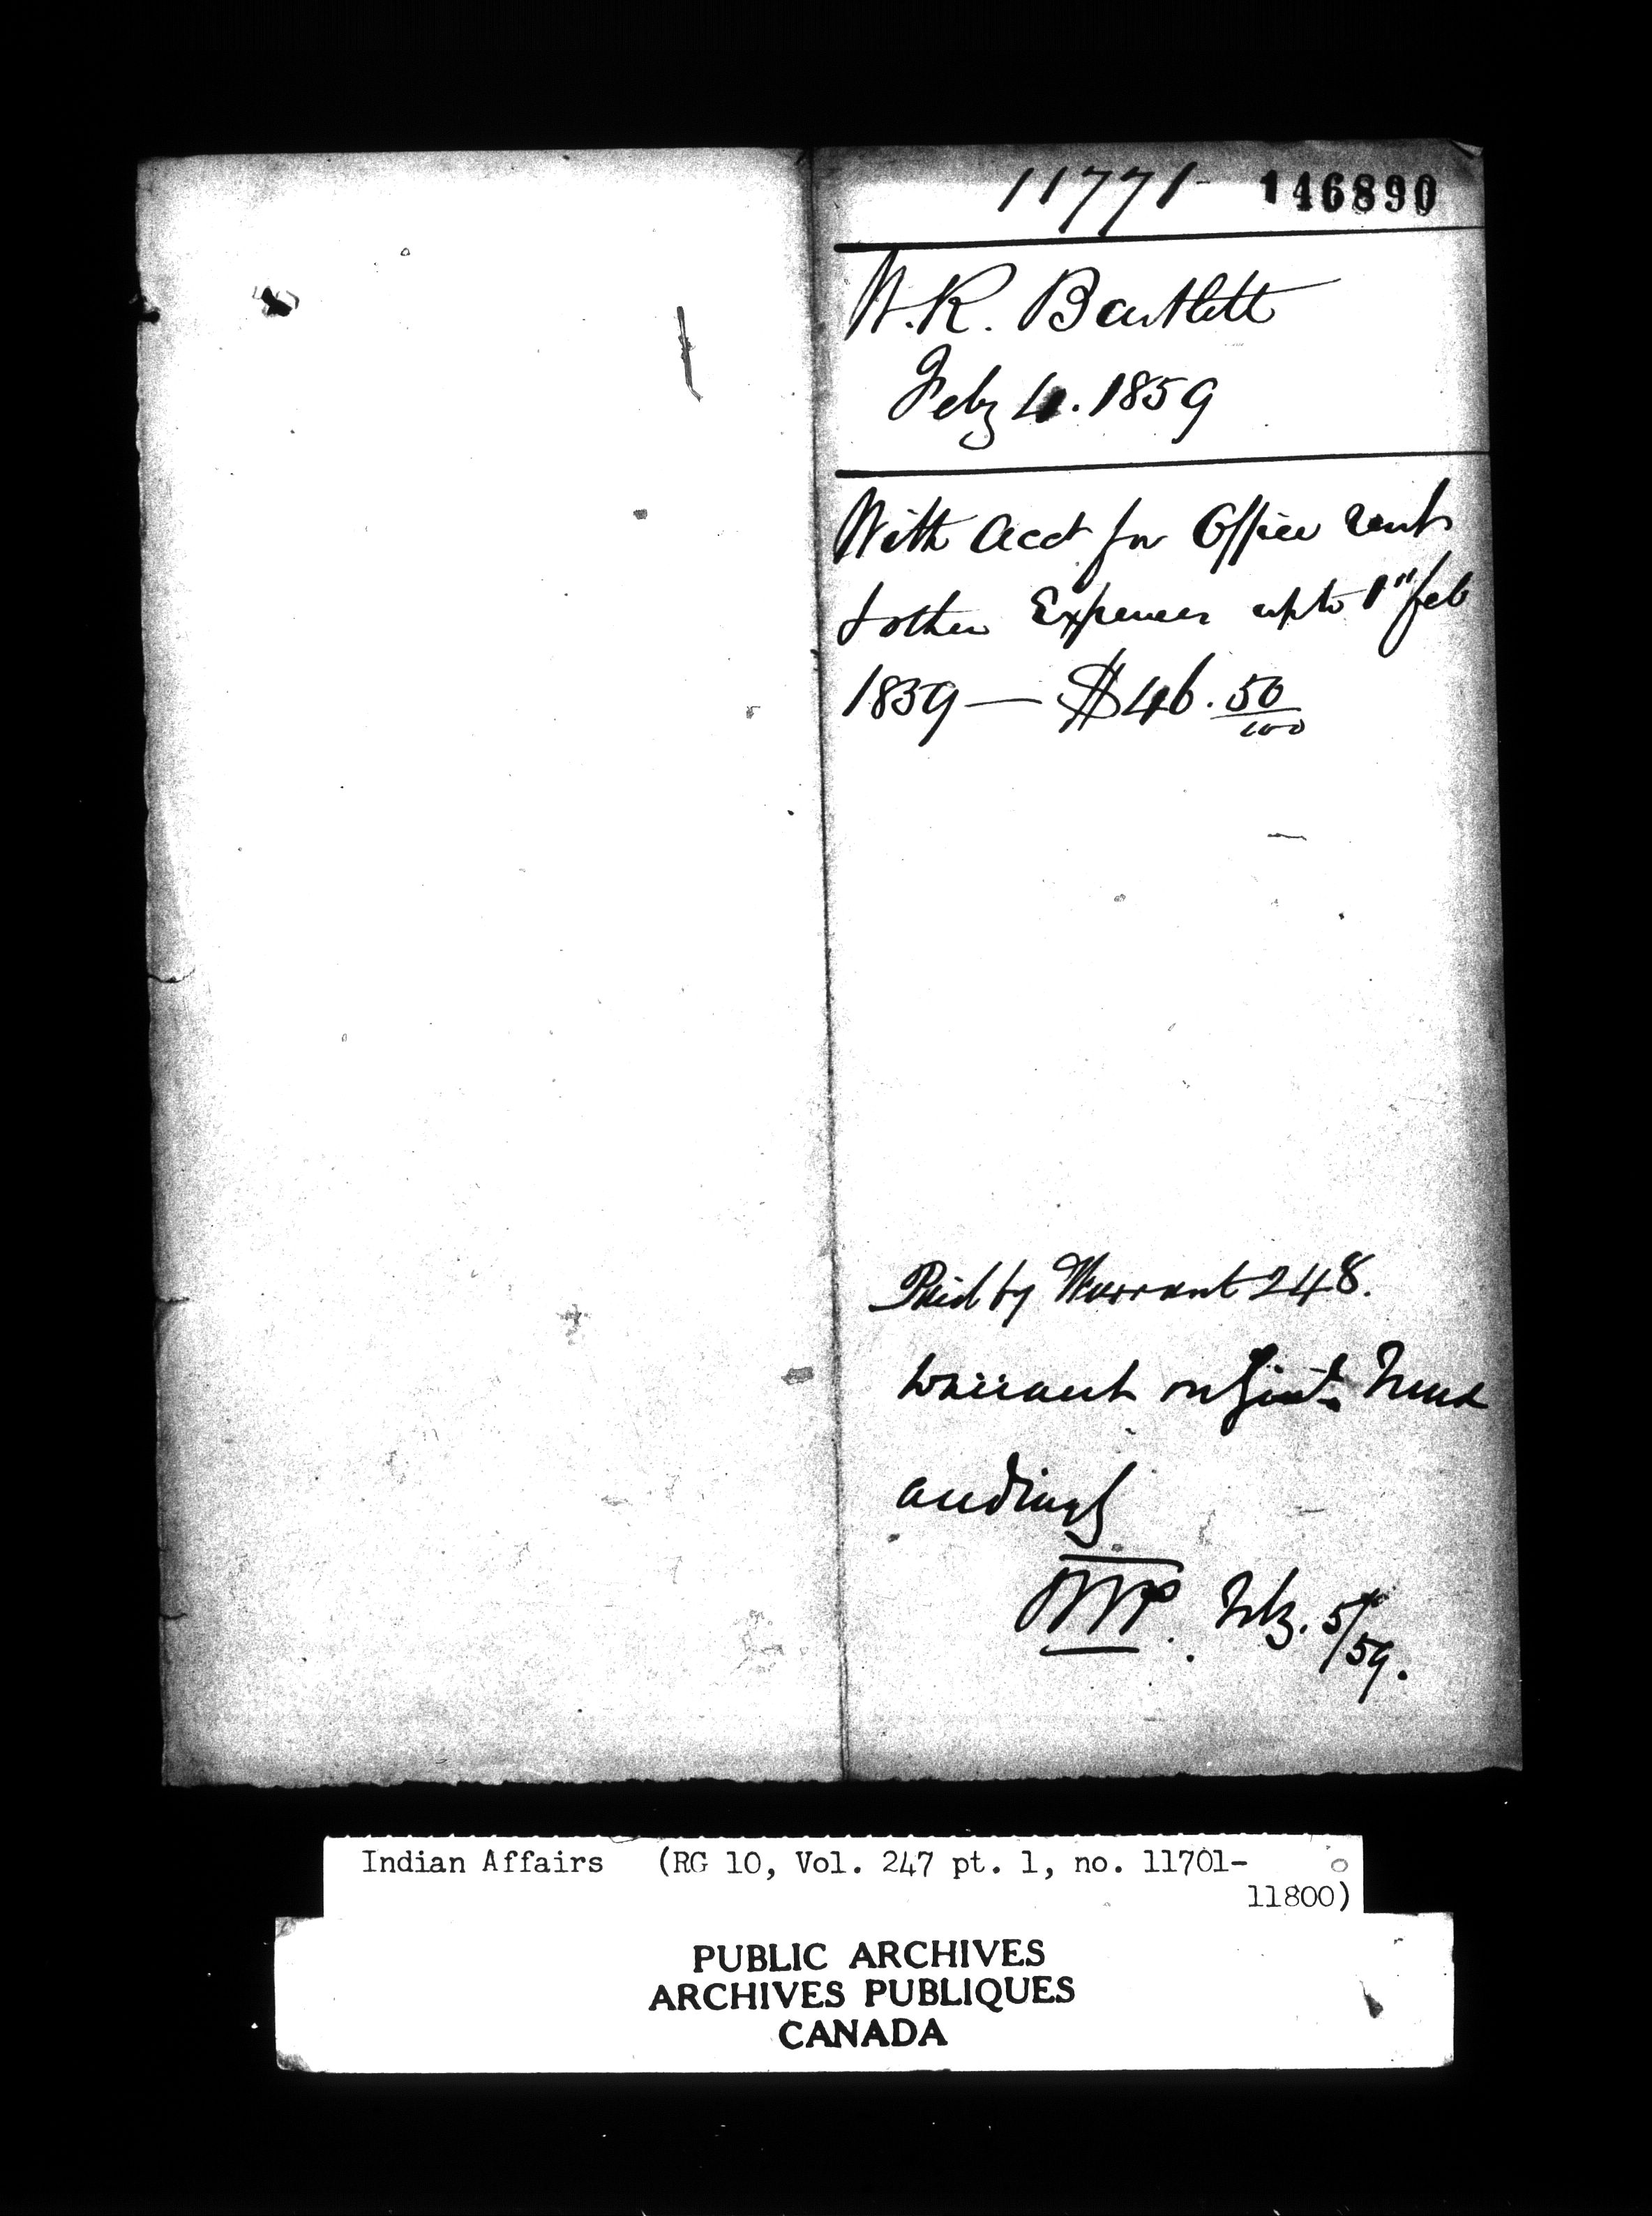 11771 146890
W.R. Bartlett
Feby 4. 1859
With acct for Office rent
& other Expenses up to 1st feb
1859 — $46. 50/100
Paid by Warrant 248.
Warrant on Fund
accordingly
Feby. 5/59.
Indian Affairs (RG 10, Vol. 247 pt. 1, no. 11701-
11800)
PUBLIC ARCHIVES
ARCHIVES PUBLIQUES
CANADA